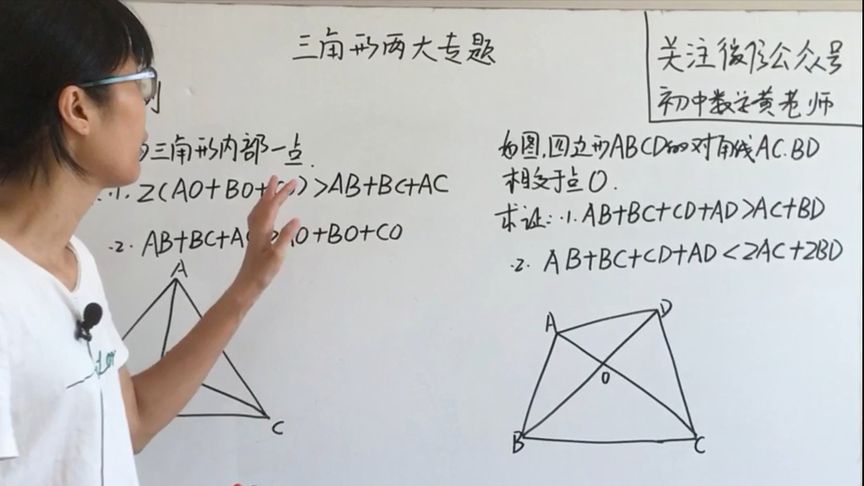 三角形两大专题
关注微信公众号
初中数学黄老师
三角形内部一点.
.1. 2(AO+BO+CO)>AB+BC+AC
.2. AB+BC+AC>AO+BO+CO
A
C
如图,四边形ABCD的对角线AC.BD
相交于点O.
求证: .1. AB+BC+CD+AD>AC+BD
.2. AB+BC+CD+AD<2AC+2BD
A
D
O
B
C